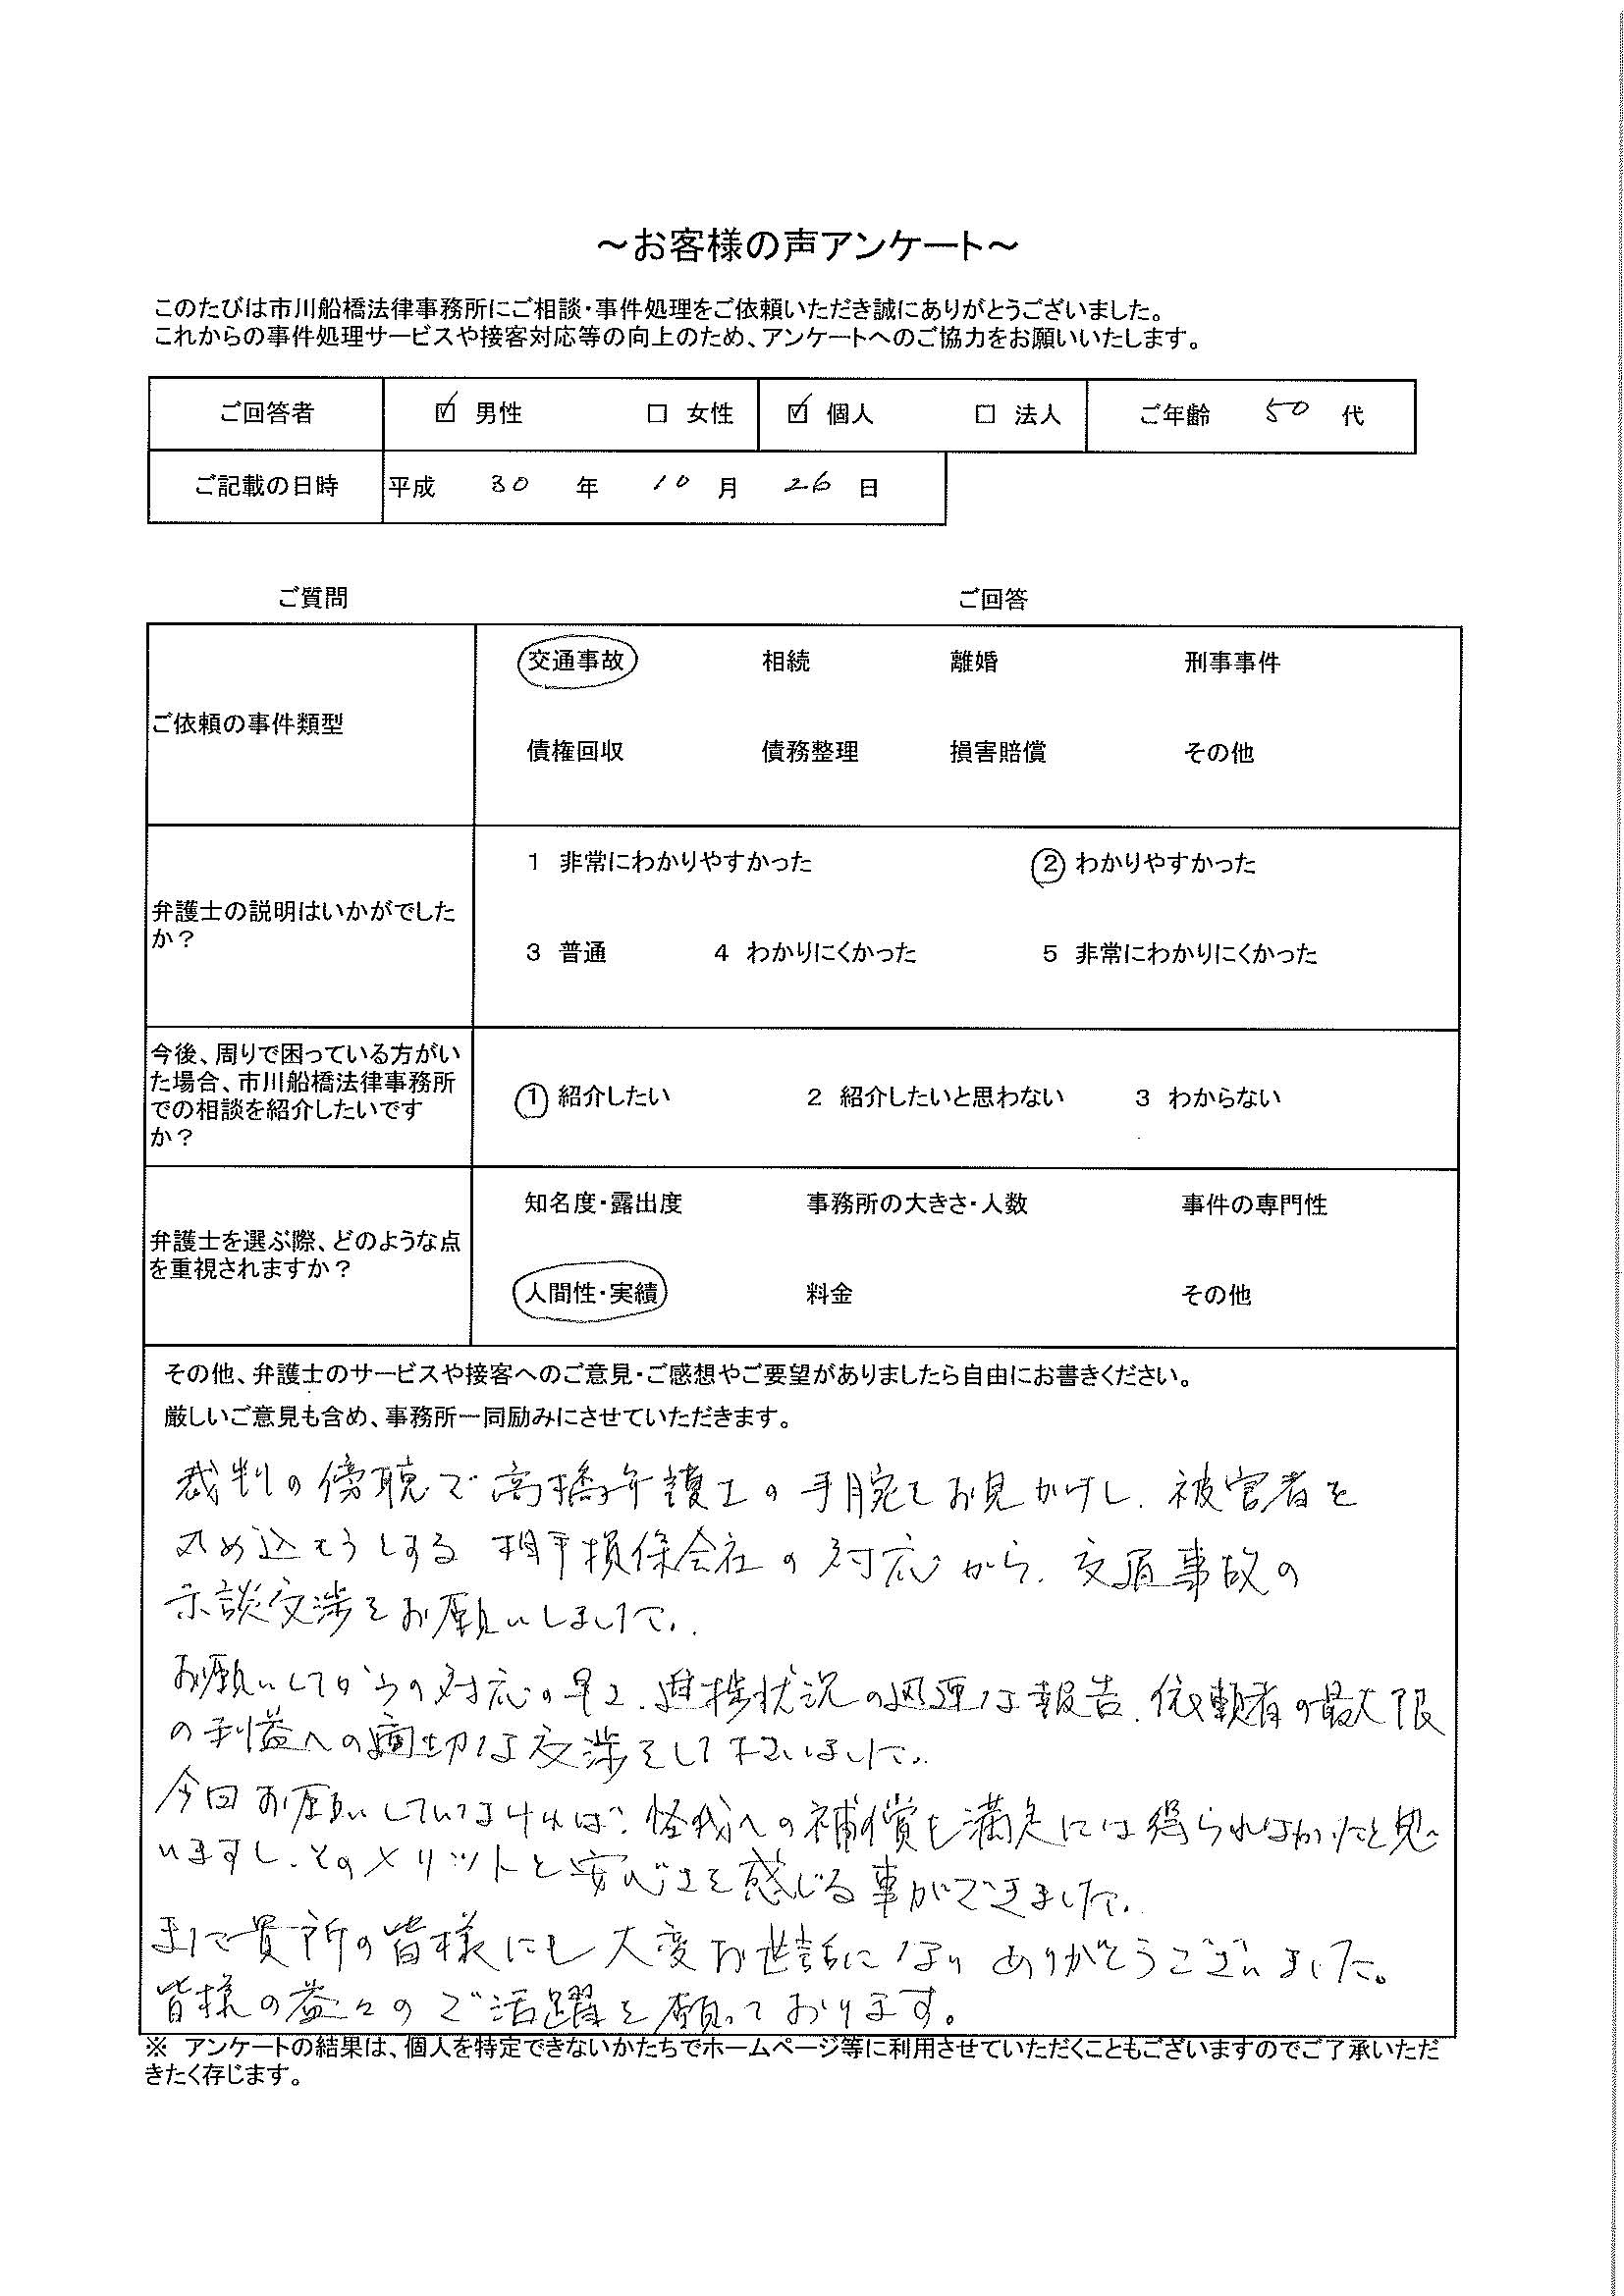 ～お客様の声アンケート～
このたびは市川船橋法律事務所にご相談・事件処理をご依頼いただき誠にありがとうございました。
これからの事件処理サービスや接客対応等の向上のため、アンケートへのご協力をお願いいたします。
ご回答者 ☑ 男性 □ 女性 ☑ 個人 □ 法人 ご年齢 50 代
ご記載の日時 平成 30 年 10 月 26 日
ご質問 ご回答
ご依頼の事件類型
交通事故 相続 離婚 刑事事件
債権回収 債務整理 損害賠償 その他
弁護士の説明はいかがでした
か？
1 非常にわかりやすかった 2 わかりやすかった
3 普通 4 わかりにくかった 5 非常にわかりにくかった
今後、周りで困っている方がい
た場合、市川船橋法律事務所
での相談を紹介したいです
か？
1 紹介したい 2 紹介したいと思わない 3 わからない
弁護士を選ぶ際、どのような点
を重視されますか？
知名度・露出度 事務所の大きさ・人数 事件の専門性
人間性・実績 料金 その他
その他、弁護士のサービスや接客へのご意見・ご感想やご要望がありましたら自由にお書きください。
厳しいご意見も含め、事務所一同励みにさせていただきます。
裁判の傍聴で高橋弁護士の手腕をお見かけし、被害者を
丸め込もうとする 相手損保会社の対応から、交通事故の
示談交渉をお願いしました。
お願いしてからの対応の早さ、進捗状況の適切な報告、依頼者の最大限
の利益への適切な交渉をして下さいました。
今回お願いしていなければ、怪我への補償も満足には得られなかったと思
いますし、そのメリットと安心さを感じる事ができました。
また貴所の皆様にも大変お世話になり ありがとうございました。
皆様の益々のご活躍を願っております。
※ アンケートの結果は、個人を特定できないかたちでホームページ等に利用させていただくこともございますのでご了承いただ
きたく存じます。